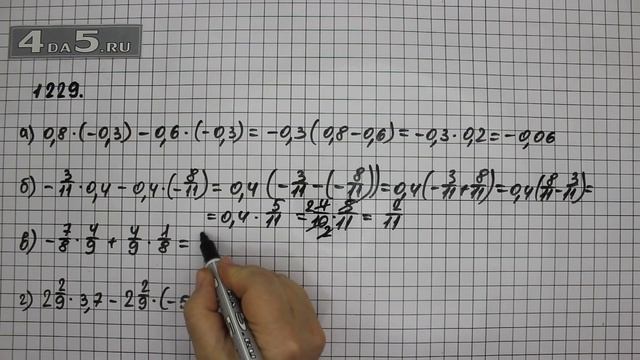 4DA5.RU
1229.
а) 0,8·(-0,3)-0,6·(-0,3)=-0,3(0,8-0,6)=-0,3·0,2=-0,06
б) -3/11·0,4-0,4·(-8/11)=0,4(-3/11-(-8/11))=0,4(-3/11+8/11)=0,4(8/11-3/11)=
=0,4·5/11=
в) -7/8·4/9+4/9·1/8=
г) 2 2/9·3,7-2 2/9·(-5